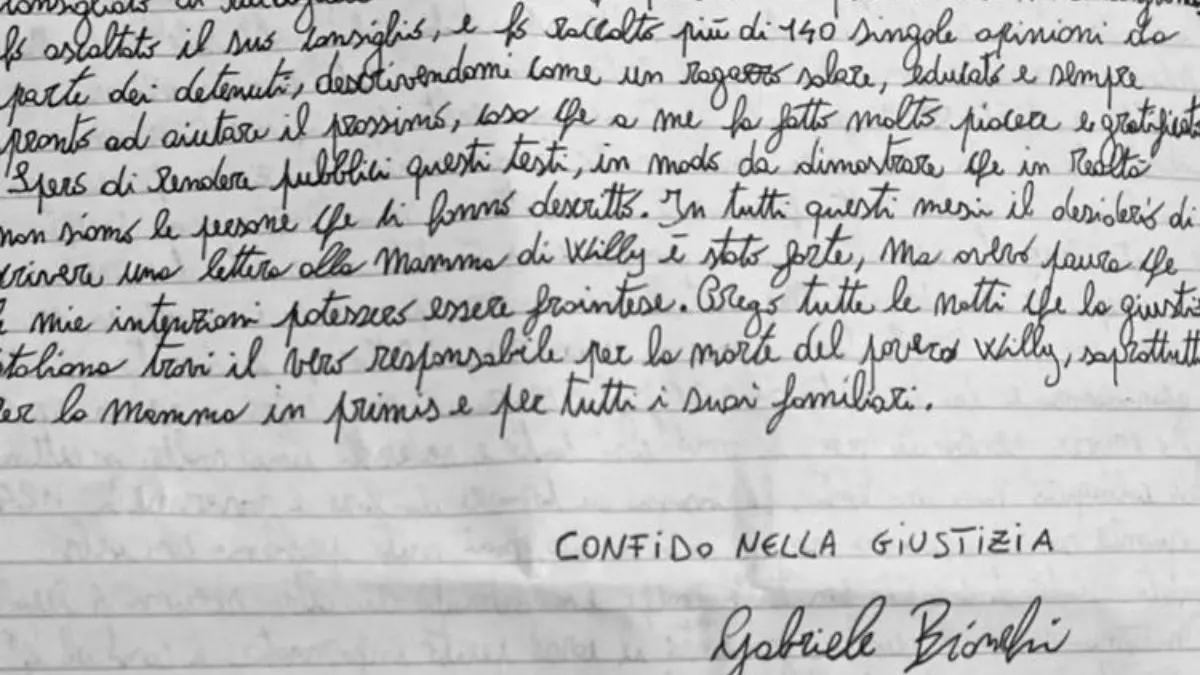 consigliato di raccogliere
ho ascoltato il suo consiglio, e ho raccolto più di 140 singole opinioni da
parte dei detenuti, descrivendomi come un ragazzo solare, educato e sempre
pronto ad aiutare il prossimo, cosa che a me ha fatto molto piacere e gratificato
Spero di rendere pubblici questi testi, in modo da dimostrare che in realtà
non siamo le persone che ci hanno descritto. In tutti questi mesi il desiderio di
crivere una lettera alla mamma di Willy è stato forte, ma avevo paura che
e mie intenzioni potessero essere fraintese. Prego tutte le notti che la giusti
italiana trovi il vero responsabile per la morte del povero Willy, soprattutt
er la mamma in primis e per tutti i suoi familiari.
CONFIDO NELLA GIUSTIZIA
Gabriele Bianchi